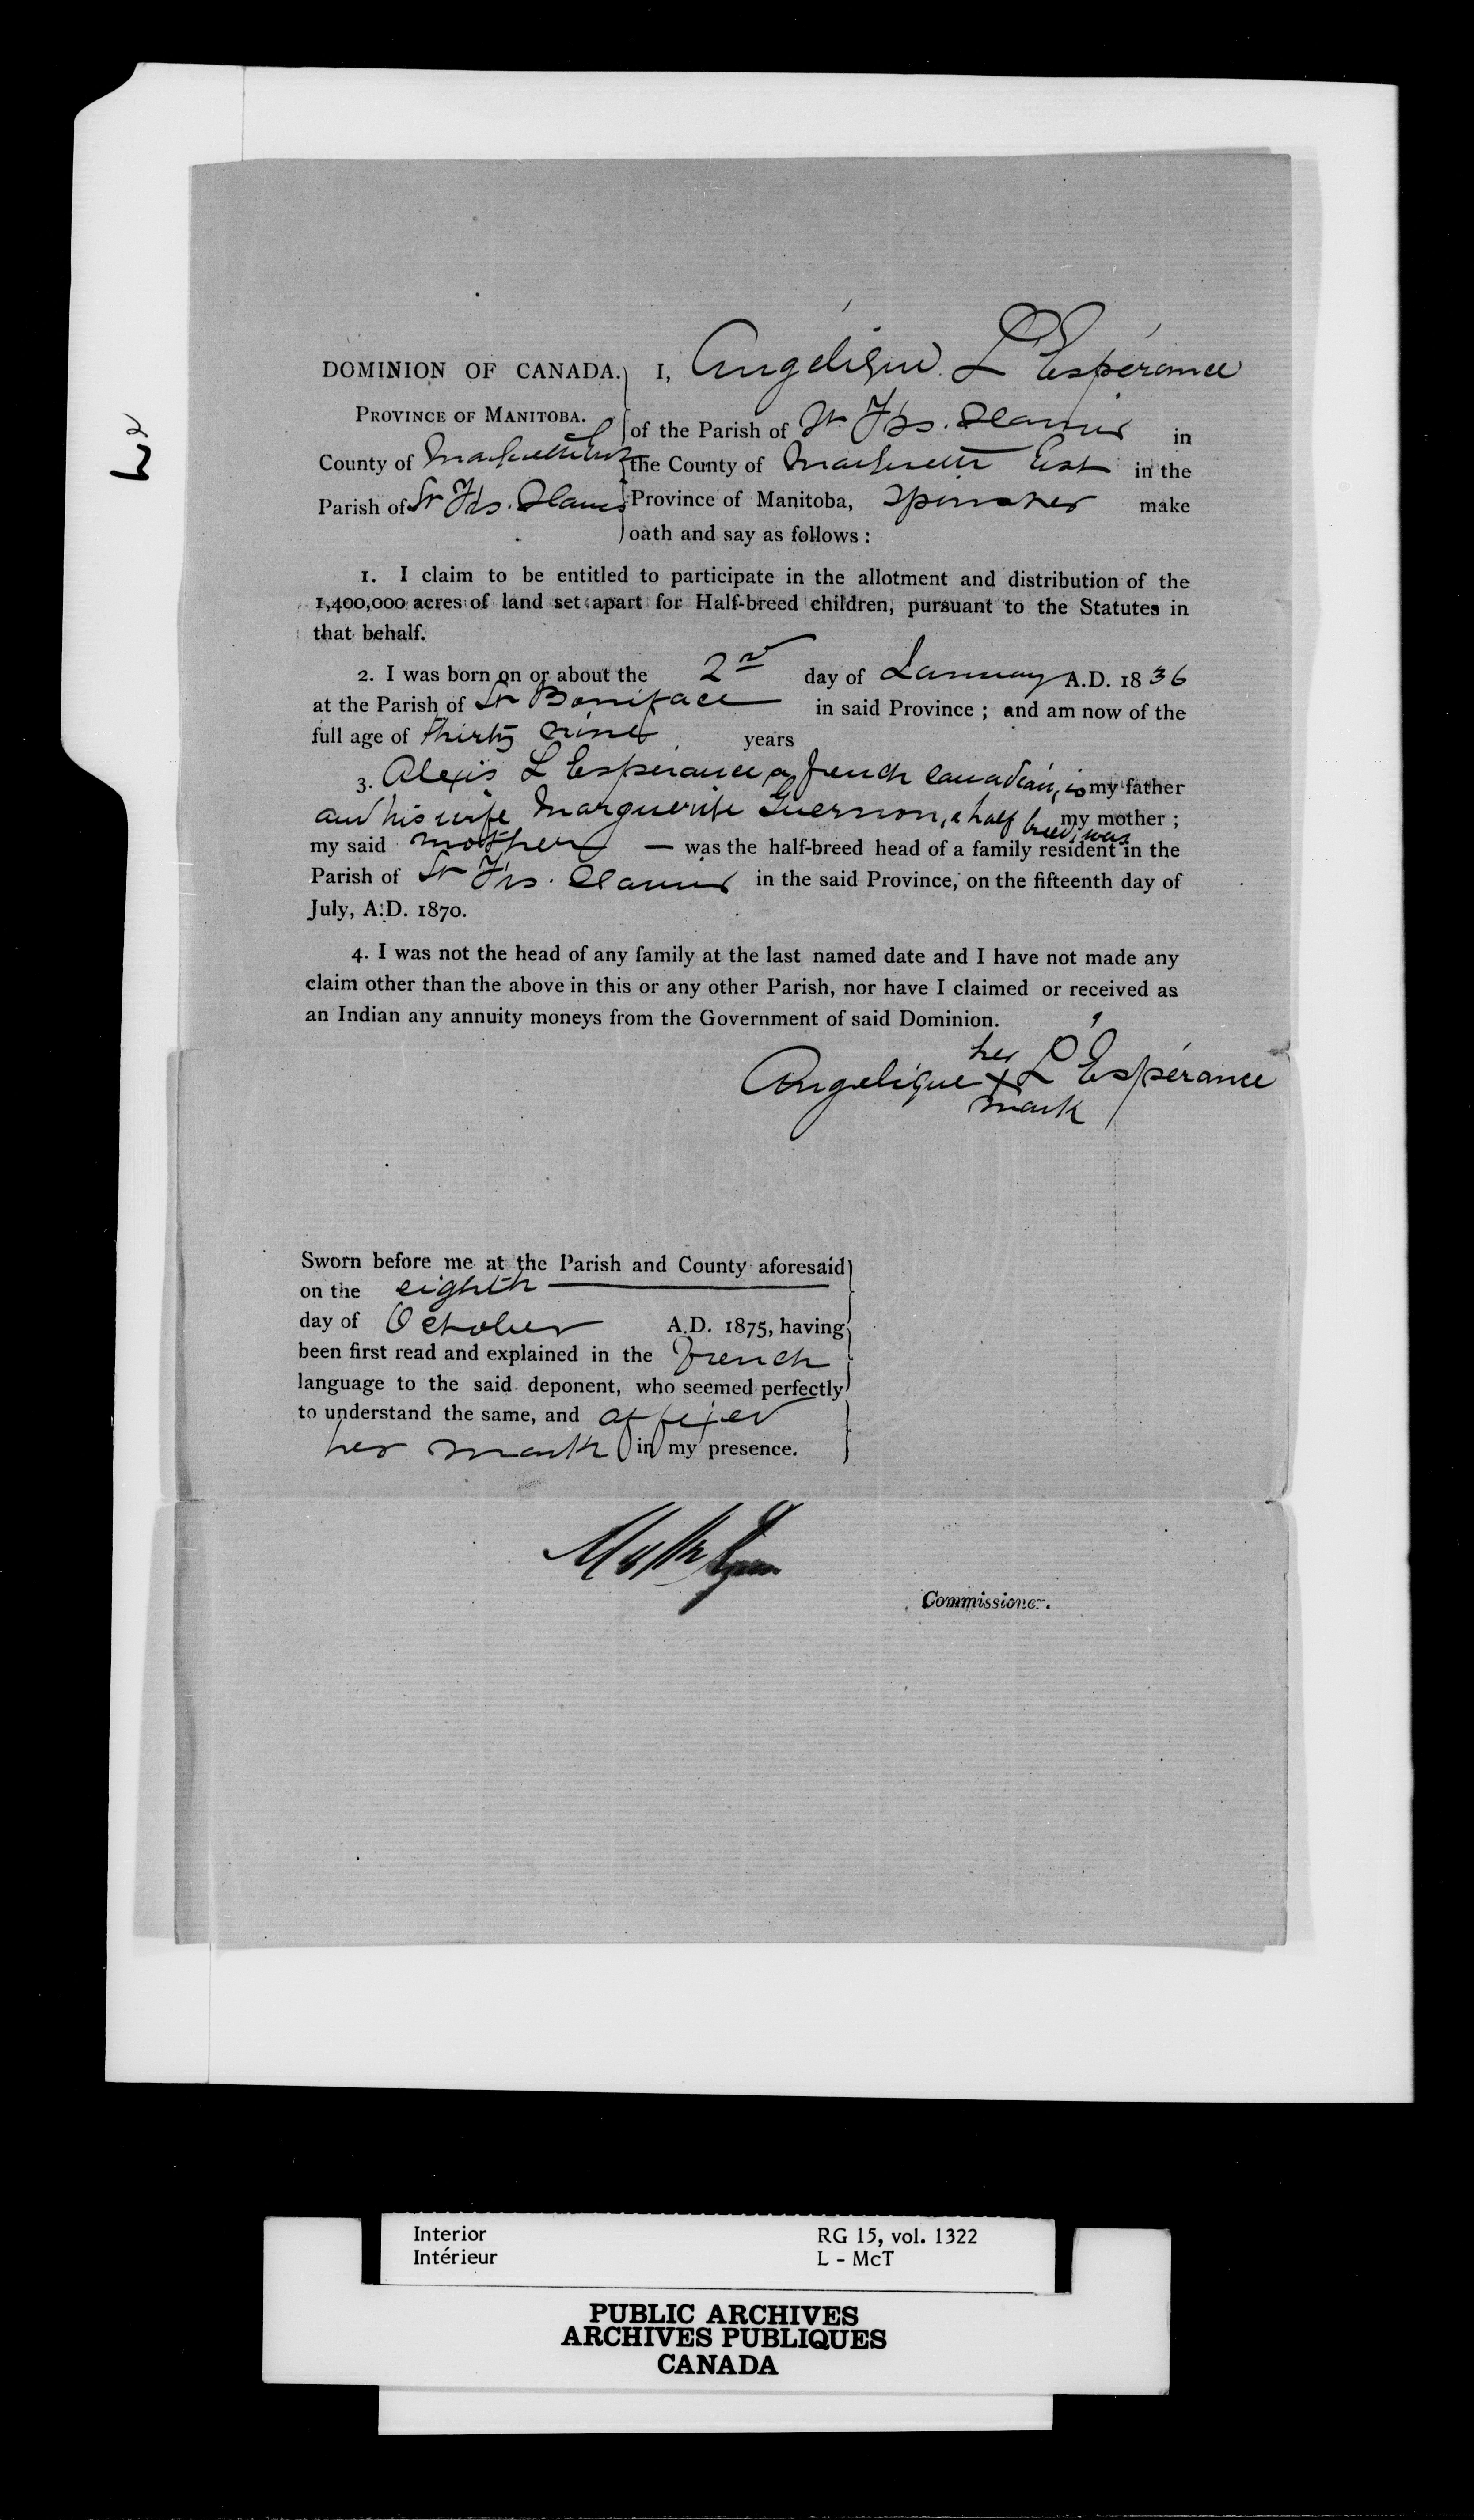 DOMINION OF CANADA. I, Angélique L'Espérance
PROVINCE OF MANITOBA. of the Parish of St Frs. Xavier in
County of Marquette East the County of Marquette East in the
Parish of St Frs. Xavier Province of Manitoba, Spinster make
oath and say as follows :
1. I claim to be entitled to participate in the allotment and distribution of the
1,400,000 acres of land set apart for Half-breed children, pursuant to the Statutes in
that behalf.
2. I was born on or about the 2nd day of January A.D. 1836
at the Parish of St Boniface in said Province ; and am now of the
full age of thirty nine years
3. Alexis L'Espérance a french Canadian, is my father
and his wife Marguerite Guernon, a half breed, was my mother ;
my said mother — was the half-breed head of a family resident in the
Parish of St Frs. Xavier in the said Province, on the fifteenth day of
July, A.D. 1870.
4. I was not the head of any family at the last named date and I have not made any
claim other than the above in this or any other Parish, nor have I claimed or received as
an Indian any annuity moneys from the Government of said Dominion.
her
Angelique X L'Espérance
mark
Sworn before me at the Parish and County aforesaid
on the eighth
day of October A.D. 1875, having
been first read and explained in the french
language to the said deponent, who seemed perfectly
to understand the same, and affixed
her mark in my presence.
Commissioner.
Interior RG 15, vol. 1322
Intérieur L - McT
PUBLIC ARCHIVES
ARCHIVES PUBLIQUES
CANADA